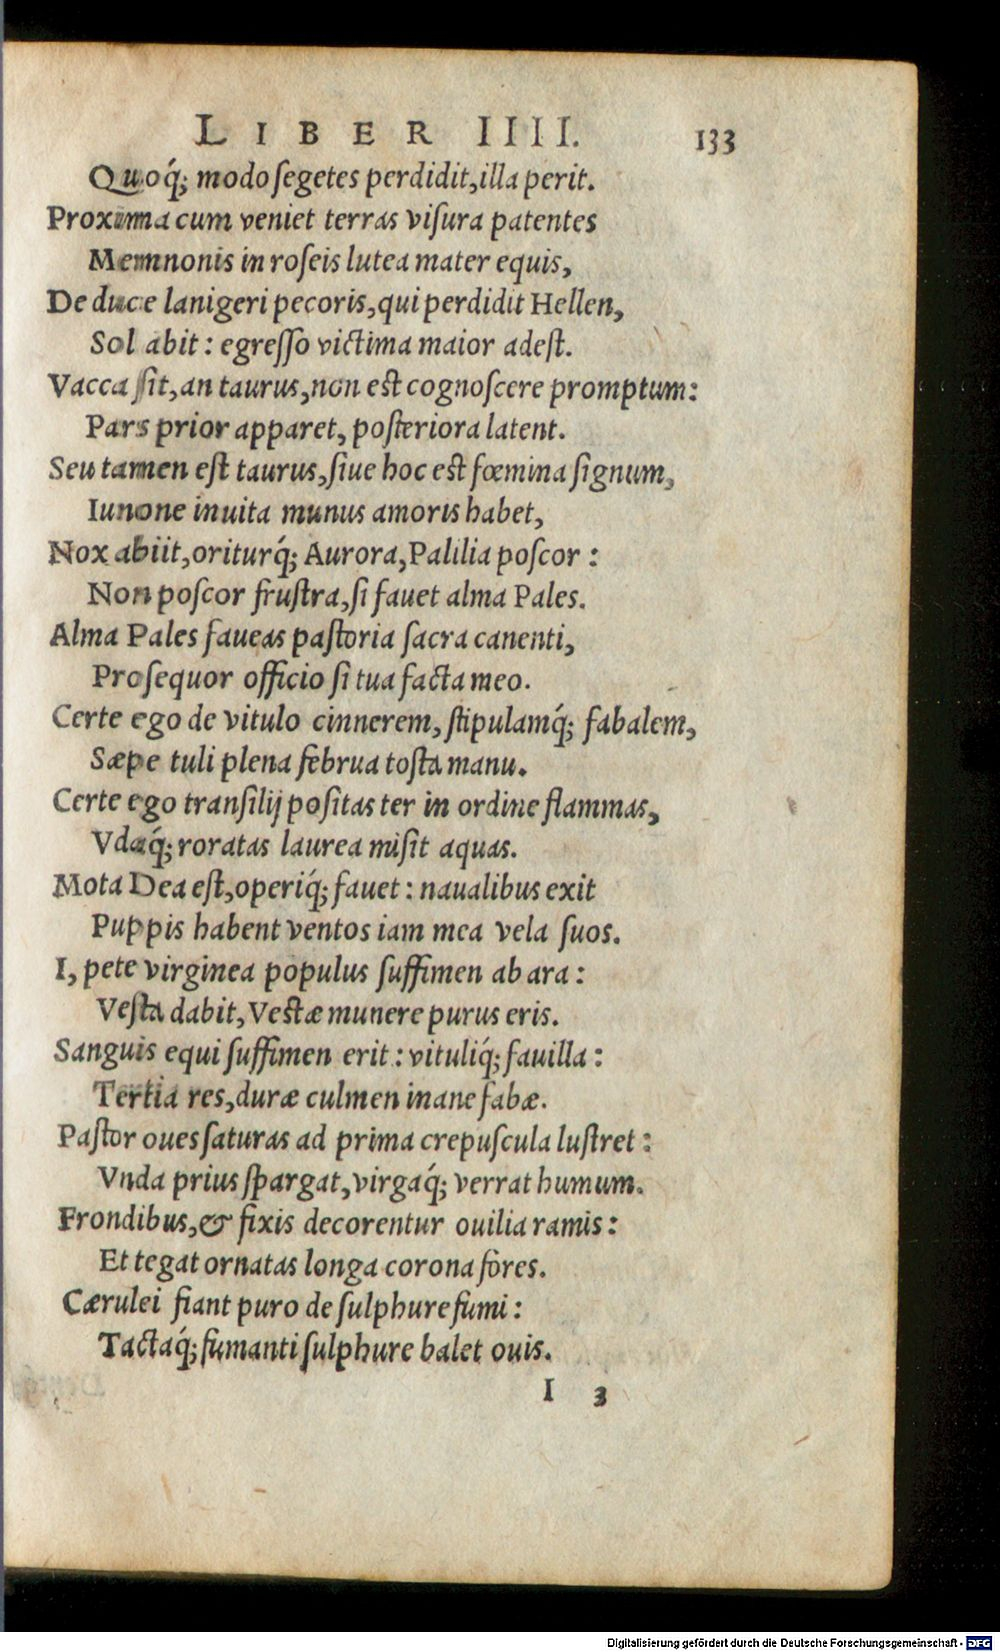 LIBER IIII. 133
Quoq́; modo ſegetes perdidit, illa perit.
Proxima cum veniet terras viſura patentes
Memnonis in roſeis lutea mater equis,
De duce lanigeri pecoris, qui perdidit Hellen,
Sol abit: egreſſo victima maior adeſt.
Vacca ſit, an taurus, non eſt cognoſcere promptum:
Pars prior apparet, poſteriora latent.
Seu tamen eſt taurus, ſiue hoc eſt fœmina ſignum,
Iunone inuita munus amoris habet,
Nox abiit, oriturq́; Aurora, Palilia poſcor:
Non poſcor fruſtra, ſi fauet alma Pales.
Alma Pales faueas paſtoria ſacra canenti,
Proſequor officio ſi tua facta meo.
Certe ego de vitulo cinnerem, ſtipulamq́; fabalem,
Sæpe tuli plena februa toſta manu.
Certe ego tranſilij poſitas ter in ordine flammas,
Vdaq́; roratas laurea miſit aquas.
Mota Dea eſt, operiq́; fauet: naualibus exit
Puppis habent ventos iam mea vela ſuos.
I, pete virginea populus ſuffimen ab ara:
Veſta dabit, Veſtæ munere purus eris.
Sanguis equi ſuffimen erit: vituliq́; fauilla:
Tertia res, duræ culmen inane fabæ.
Paſtor oues ſaturas ad prima crepuſcula luſtret:
Vnda prius ſpargat, virgaq́; verrat humum.
Frondibus, & fixis decorentur ouilia ramis:
Et tegat ornatas longa corona fores.
Cærulei fiant puro de ſulphure fumi:
Tactaq́; fumanti ſulphure balet ouis.
I 3
Digitalisierung gefördert durch die Deutsche Forschungsgemeinschaft - DFG